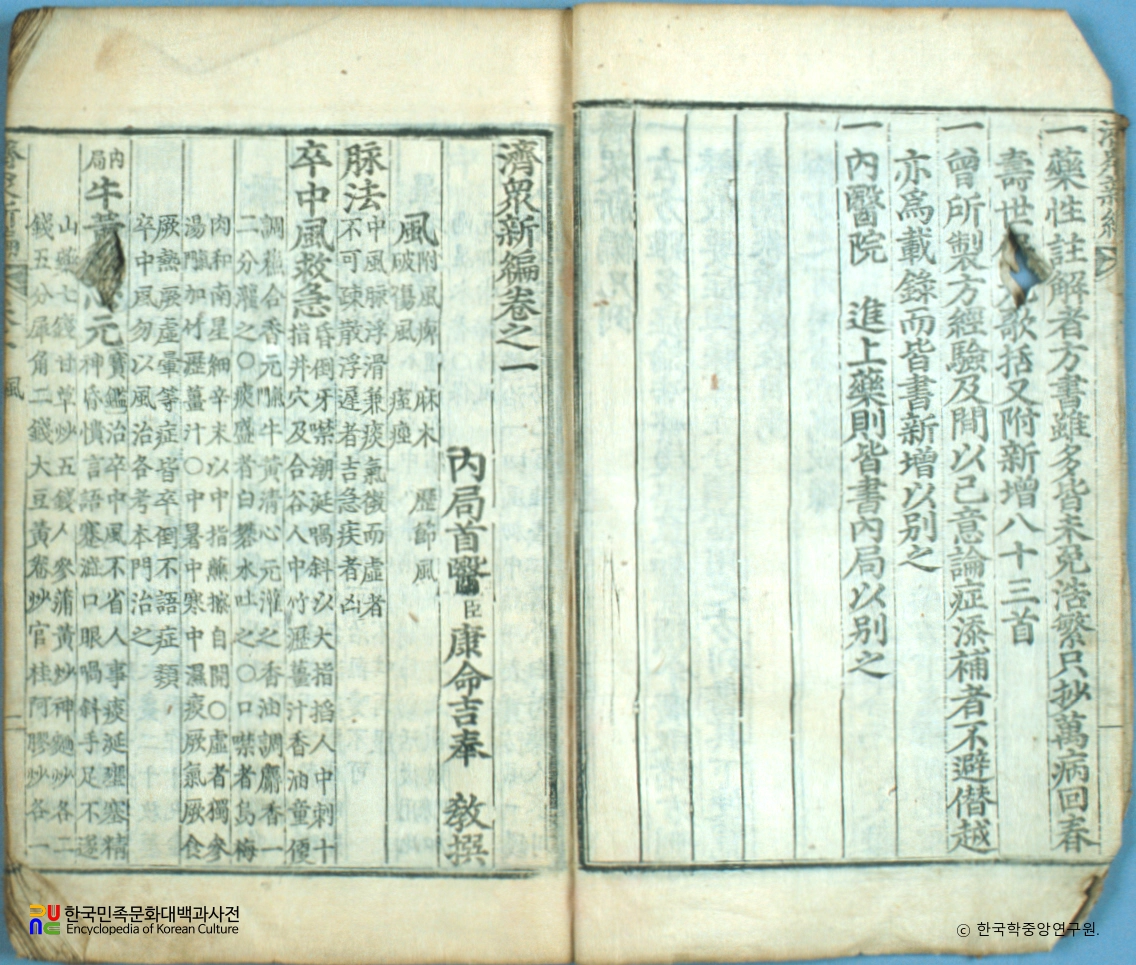 濟衆新編
一藥性註解者方書雖多皆未免浩繁只抄萬病回春
壽世元歌括又附新增八十三首
一曾所製方經驗及間以己意論症添補者不避僭越
亦爲載錄而皆書新增以別之
一內醫院 進上藥則皆書內局以別之
濟眾新編卷之一
內局首醫臣康命吉奉 敎撰
風 附風痺 麻木 歷節風
破傷風 瘖瘂
脉法 中風脉浮滑兼痰氣微而虛者
不可疎散浮遲者吉急疾者凶
卒中風救急 昏倒牙噤潮涎喎斜以大指搯人中刺十
指井穴及合谷人中竹瀝薑汁香油童便
調蘇合香元牛黃清心元灌之香油調麝香一
二分灌之○痰盛者白礬水吐之○口噤者烏梅
肉和南星細辛末以中指蘸擦自開○虛者獨參
湯加竹瀝薑汁○中暑中寒中濕痰厥氣厥食
厥熱厥虛暈等症皆卒倒不語症類
卒中風勿以風治各考本門治之
內局牛黃心元 寶鑑治卒中風不省人事痰涎壅塞精
神昏憒言語蹇澁口眼喎斜手足不遂
山藥七錢甘草炒五錢人參蒲黃炒神麯炒各二
錢五分犀角二錢大豆黃卷炒官桂阿膠炒各一
風
한국민족문화대백과사전
Encyclopedia of Korean Culture
ⓒ 한국학중앙연구원.